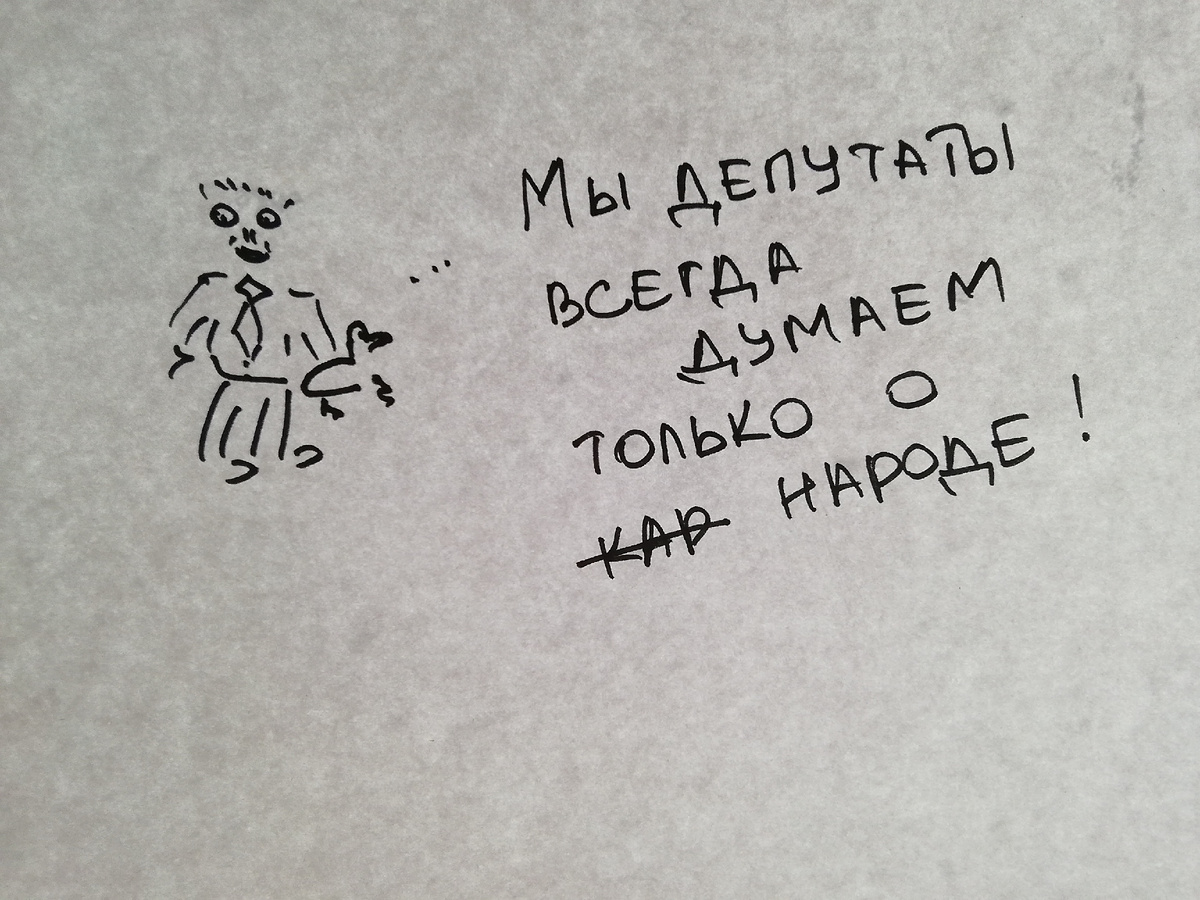 ... МЫ ДЕПУТАТЫ
ВСЕГДА
ДУМАЕМ
ТОЛЬКО О
~~КАР~~ НАРОДЕ!